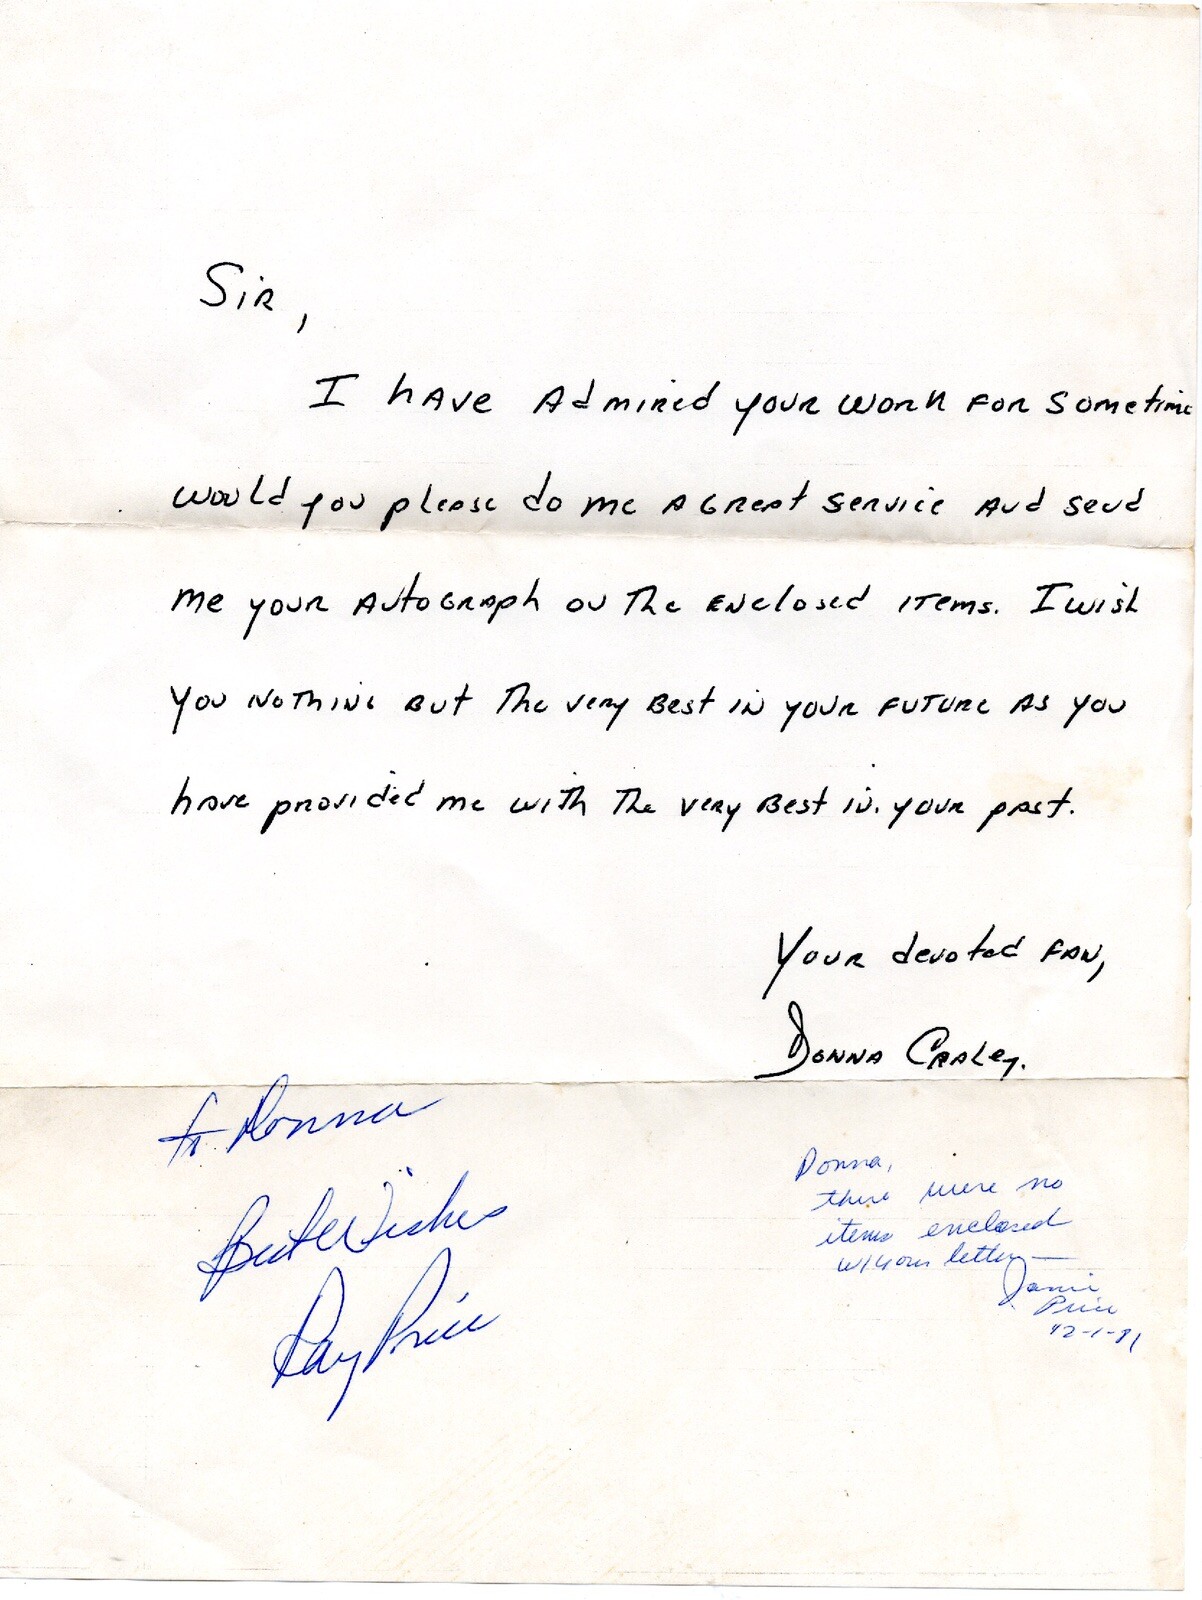 Sir,
I have Admired your work for sometime
would you please do me A Great service And send
me your Autograph on The enclosed items. I wish
you nothing But The very Best in your future As you
have provided me with The very Best in your past.
Your devoted fan,
Donna Craley.
To Donna
Best Wishes
Ray Price
Donna,
there were no
items enclosed
w/your letter —
Janie
Price
12-1-91